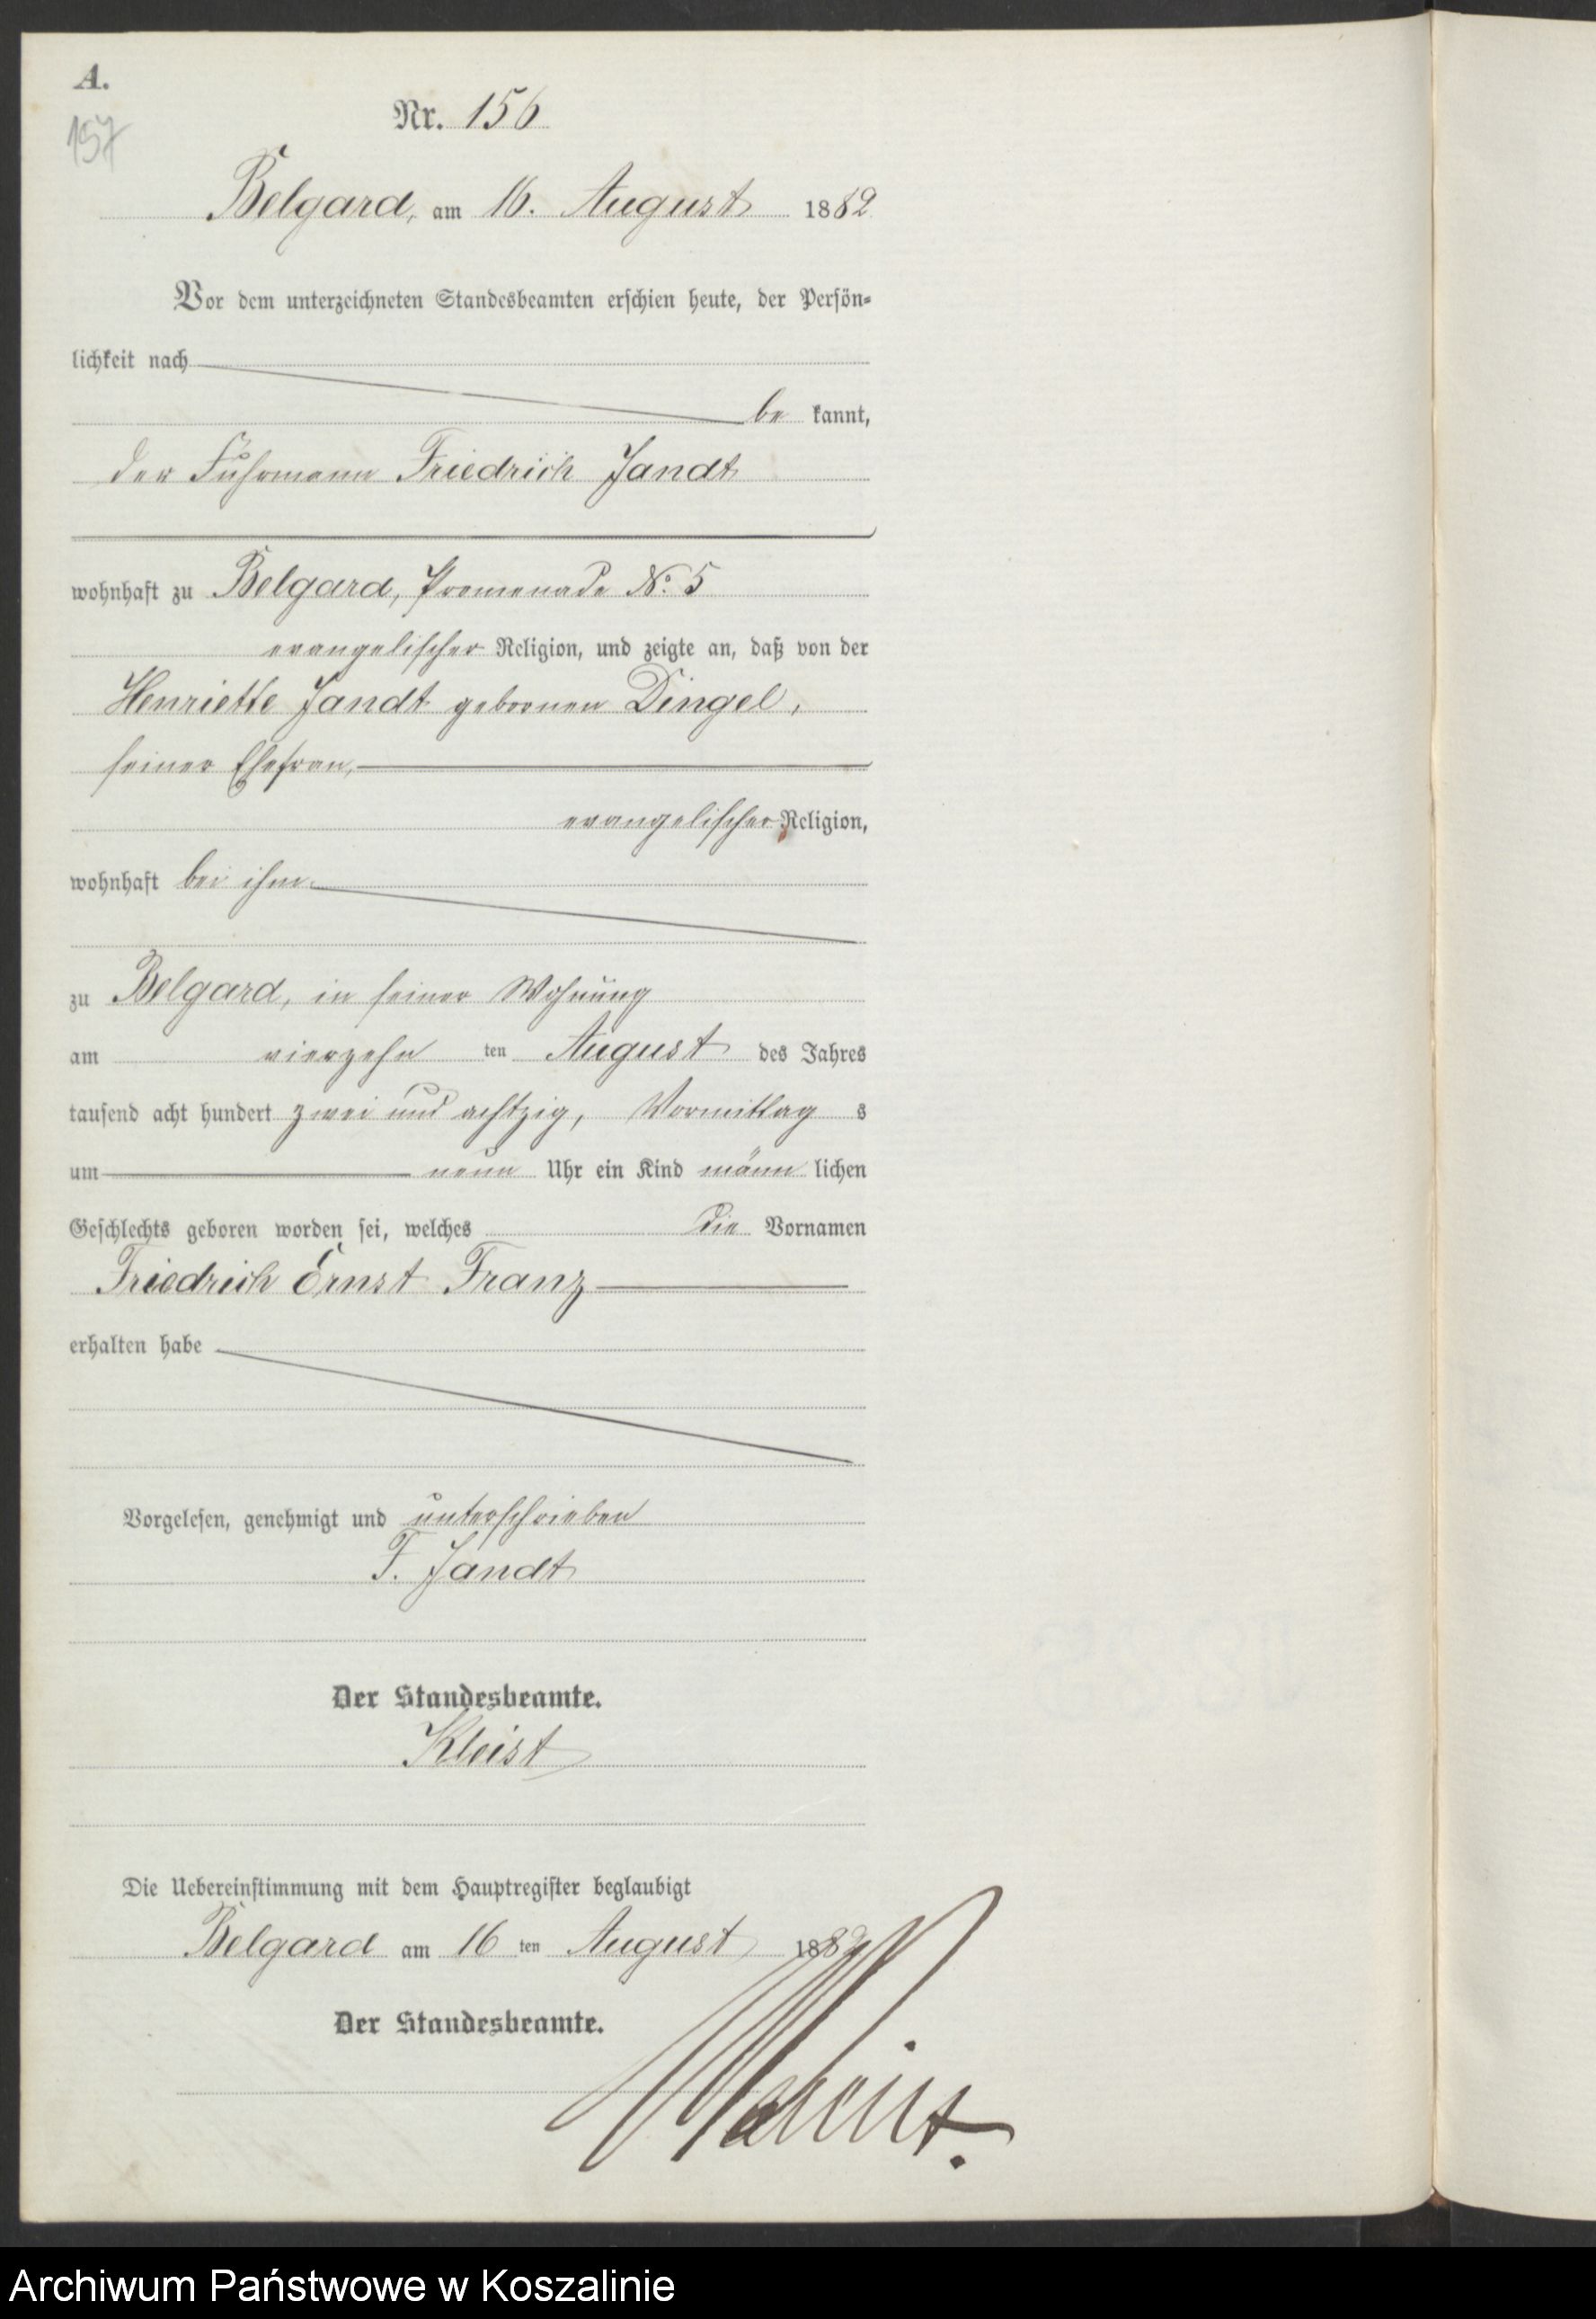 A.
157
Nr. 156
Belgard, am 16. August 1882
Vor dem unterzeichneten Standesbeamten erschien heute, der Persön-
lichkeit nach
be kannt,
der Fuhrmann Friedrich Jandt
wohnhaft zu Belgard, Promenade No. 5
evangelischer Religion, und zeigte an, daß von der
Henriette Jandt gebornen Dingel,
seiner Ehefrau,
evangelischer Religion,
wohnhaft bei ihm
zu Belgard, in seiner Wohnung
am vierzehn ten August des Jahres
tausend acht hundert zwei und achtzig, Vormittag s
um neun Uhr ein Kind männ lichen
Geschlechts geboren worden sei, welches die Vornamen
Friedrich Ernst Franz
erhalten habe
Vorgelesen, genehmigt und unterschrieben
F. Jandt
Der Standesbeamte.
Kleist
Die Uebereinstimmung mit dem Hauptregister beglaubigt
Belgard am 16 ten August 1882
Der Standesbeamte.
Kleist.
Archiwum Państwowe w Koszalinie